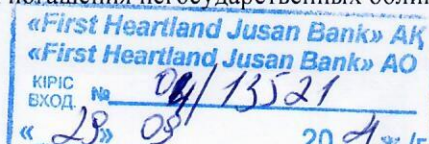 погашения негосударственных обли
«First Heartland Jusan Bank» АҚ
«First Heartland Jusan Bank» АО
КІРІС
ВХОД. № 04/13521
« 29 » 03 20